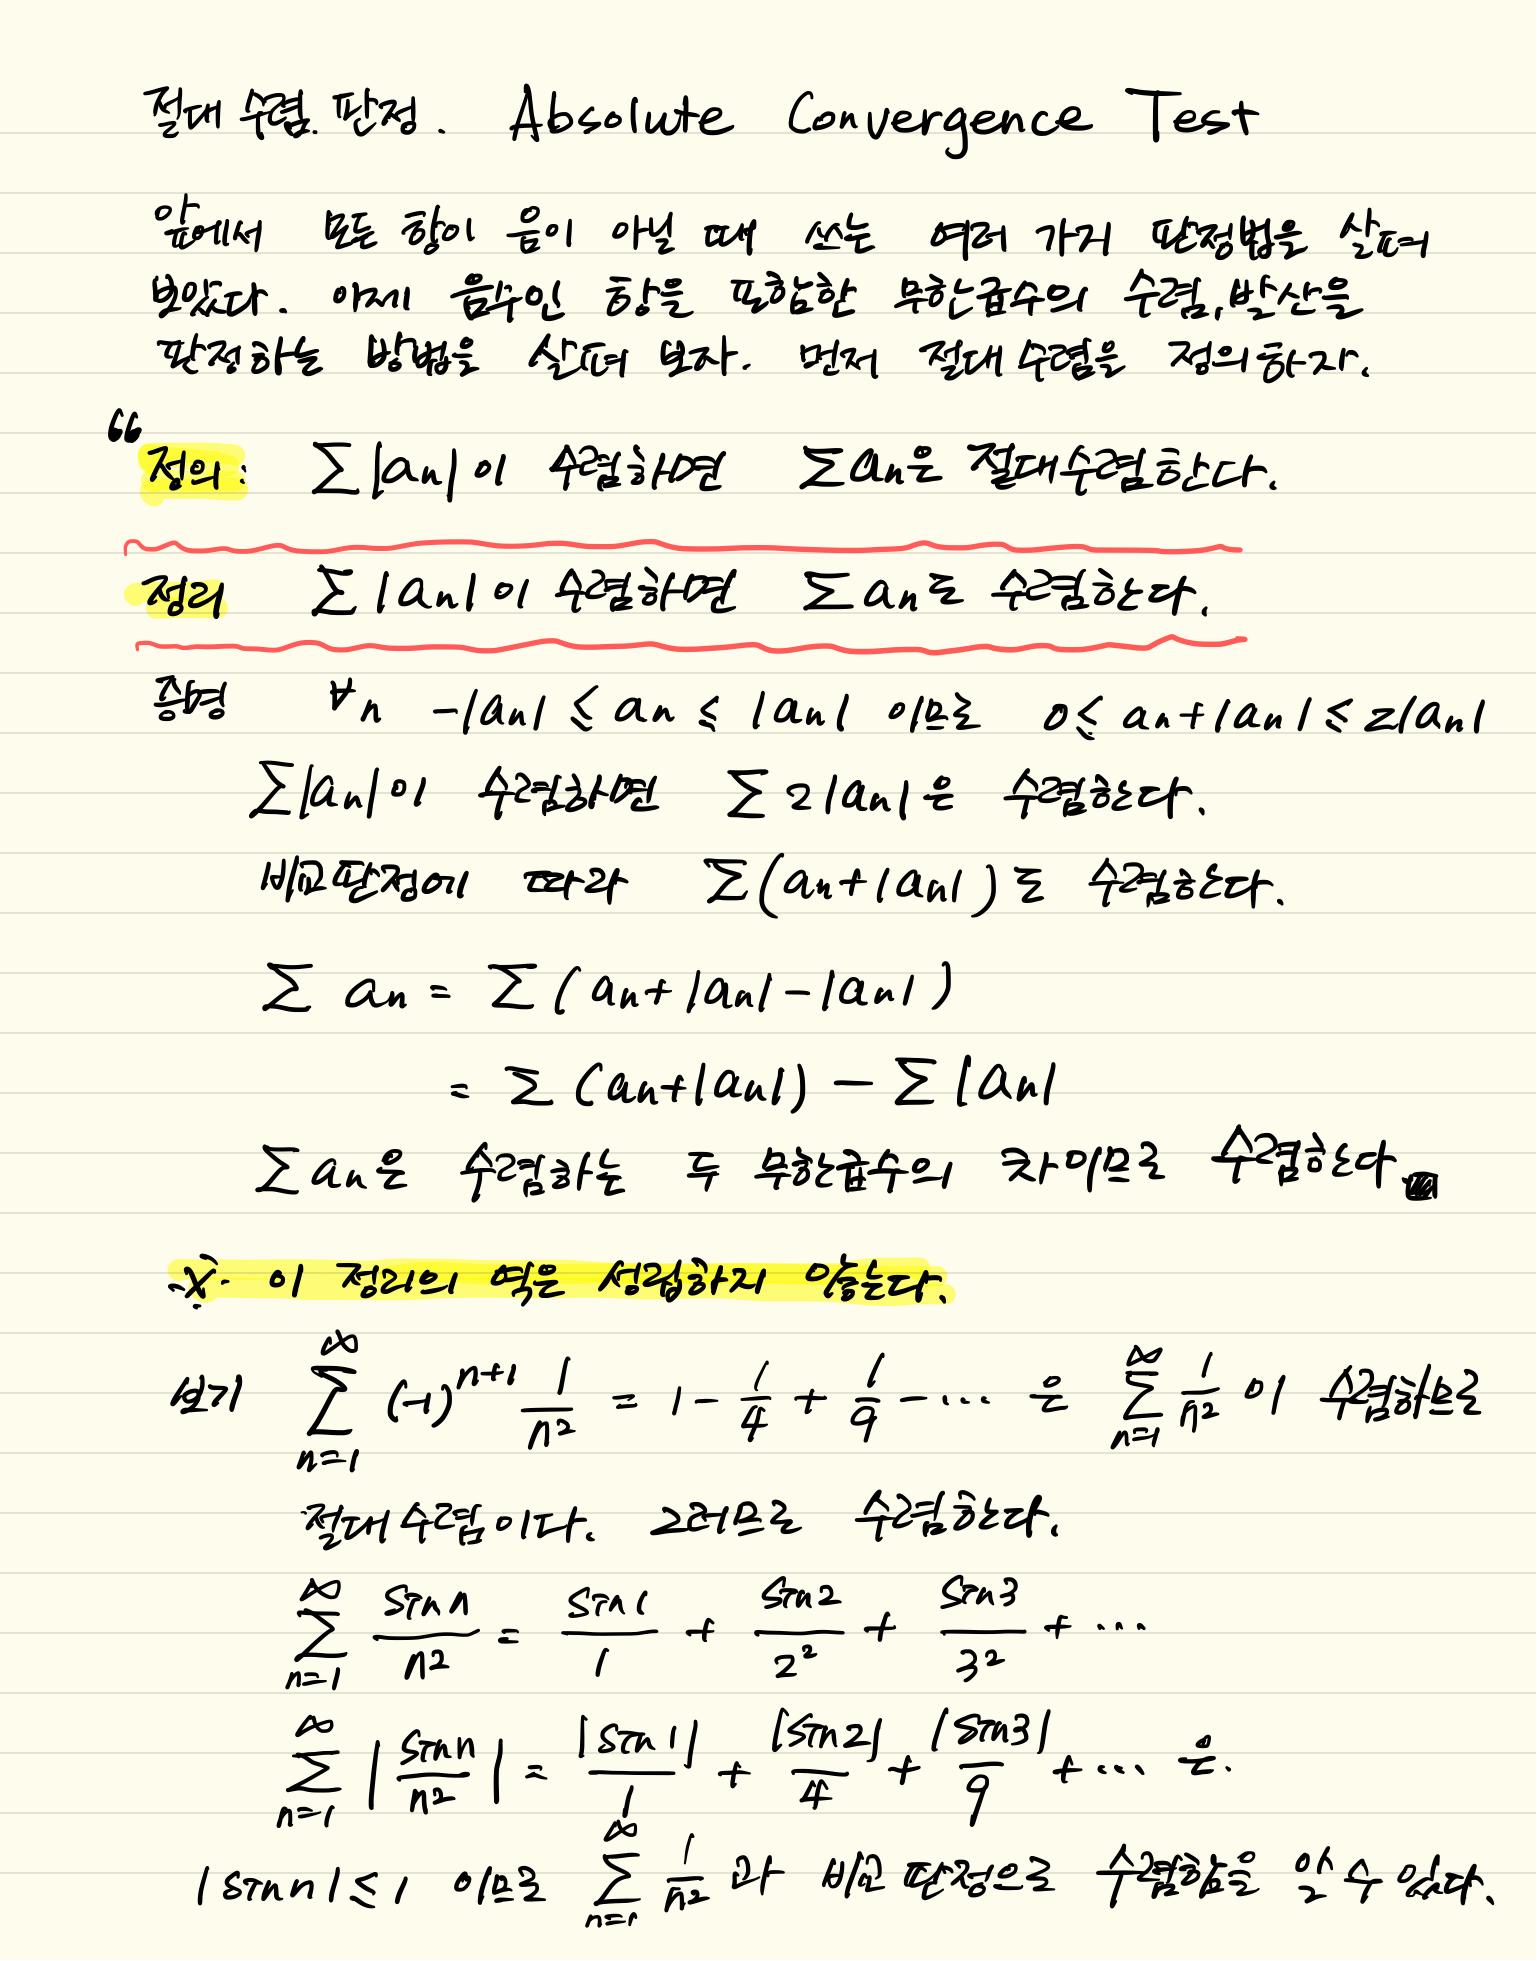 절대 수렴 판정. Absolute Convergence Test
앞에서 모든 항이 음이 아닐 때 쓰는 여러 가지 판정법을 살펴
보았다. 이제 음수인 항을 포함한 무한급수의 수렴, 발산을
판정하는 방법을 살펴 보자. 먼저 절대 수렴을 정의하자.
“ 정의: ∑|aₙ|이 수렴하면 ∑aₙ은 절대수렴한다.
정리 ∑|aₙ|이 수렴하면 ∑aₙ도 수렴한다.
증명 ∀n -|aₙ| ≤ aₙ ≤ |aₙ| 이므로 0 ≤ aₙ+|aₙ| ≤ 2|aₙ|
∑|aₙ|이 수렴하면 ∑2|aₙ|은 수렴한다.
비교판정에 따라 ∑(aₙ+|aₙ|)도 수렴한다.
∑ aₙ = ∑ (aₙ+|aₙ|-|aₙ|)
= ∑ (aₙ+|aₙ|) - ∑|aₙ|
∑aₙ은 수렴하는 두 무한급수의 차이므로 수렴한다 ■
※ 이 정리의 역은 성립하지 않는다.
보기 ∑_{n=1}^{∞} (-1)^{n+1} 1/n² = 1 - 1/4 + 1/9 - ⋯ 은 ∑_{n=1}^{∞} 1/n² 이 수렴하므로
절대수렴이다. 그러므로 수렴한다.
∑_{n=1}^{∞} sin n/n² = sin1/1 + sin2/2² + sin3/3² + ⋯
∑_{n=1}^{∞} |sin n/n²| = |sin1|/1 + |sin2|/4 + |sin3|/9 + ⋯ 은.
|sin n| ≤ 1 이므로 ∑_{n=1}^{∞} 1/n² 과 비교 판정으로 수렴함을 알 수 있다.